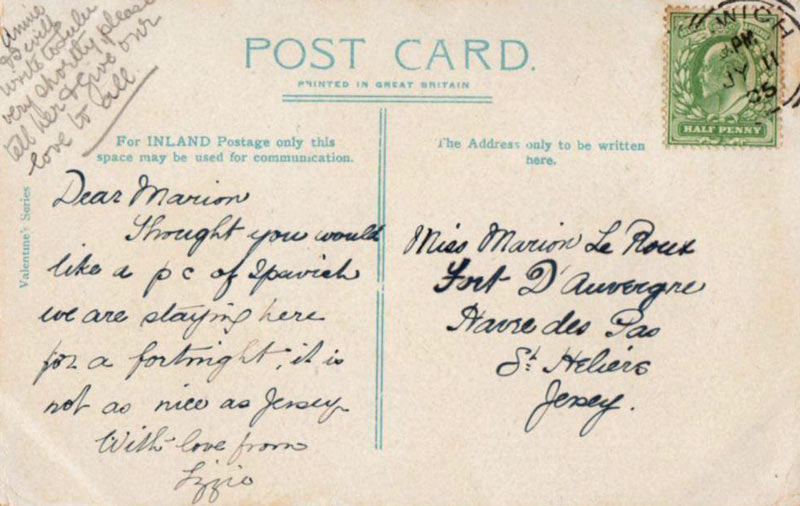 Annie
& I will
write to Lulu
very shortly please
tell her & give our
love to all
POST CARD.
PRINTED IN GREAT BRITAIN
For INLAND Postage only this
space may be used for communication.
The Address only to be written
here.
Valentine's Series
Dear Marion
Thought you would
like a p c of Ipswich
we are staying here
for a fortnight, it is
not as nice as Jersey
With love from
Lizzie
Miss Marion Le Roux
Fort D'Auvergne
Havre des Pas
St Heliers
Jersey.
WICH
PM
JY 11
05
HALF PENNY